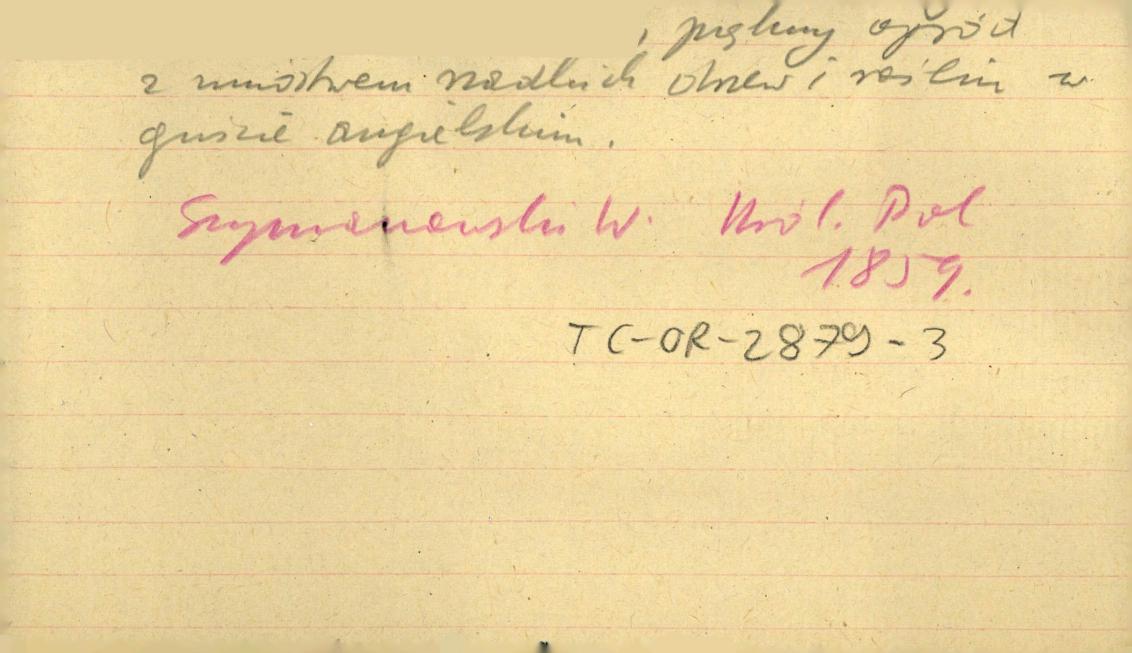 , piękny ogród
z mnóstwem rzadkich drzew i roślin w
guście angielskim.
Szymanowski W. Król. Pol
1859.
TC-OR-2879-3